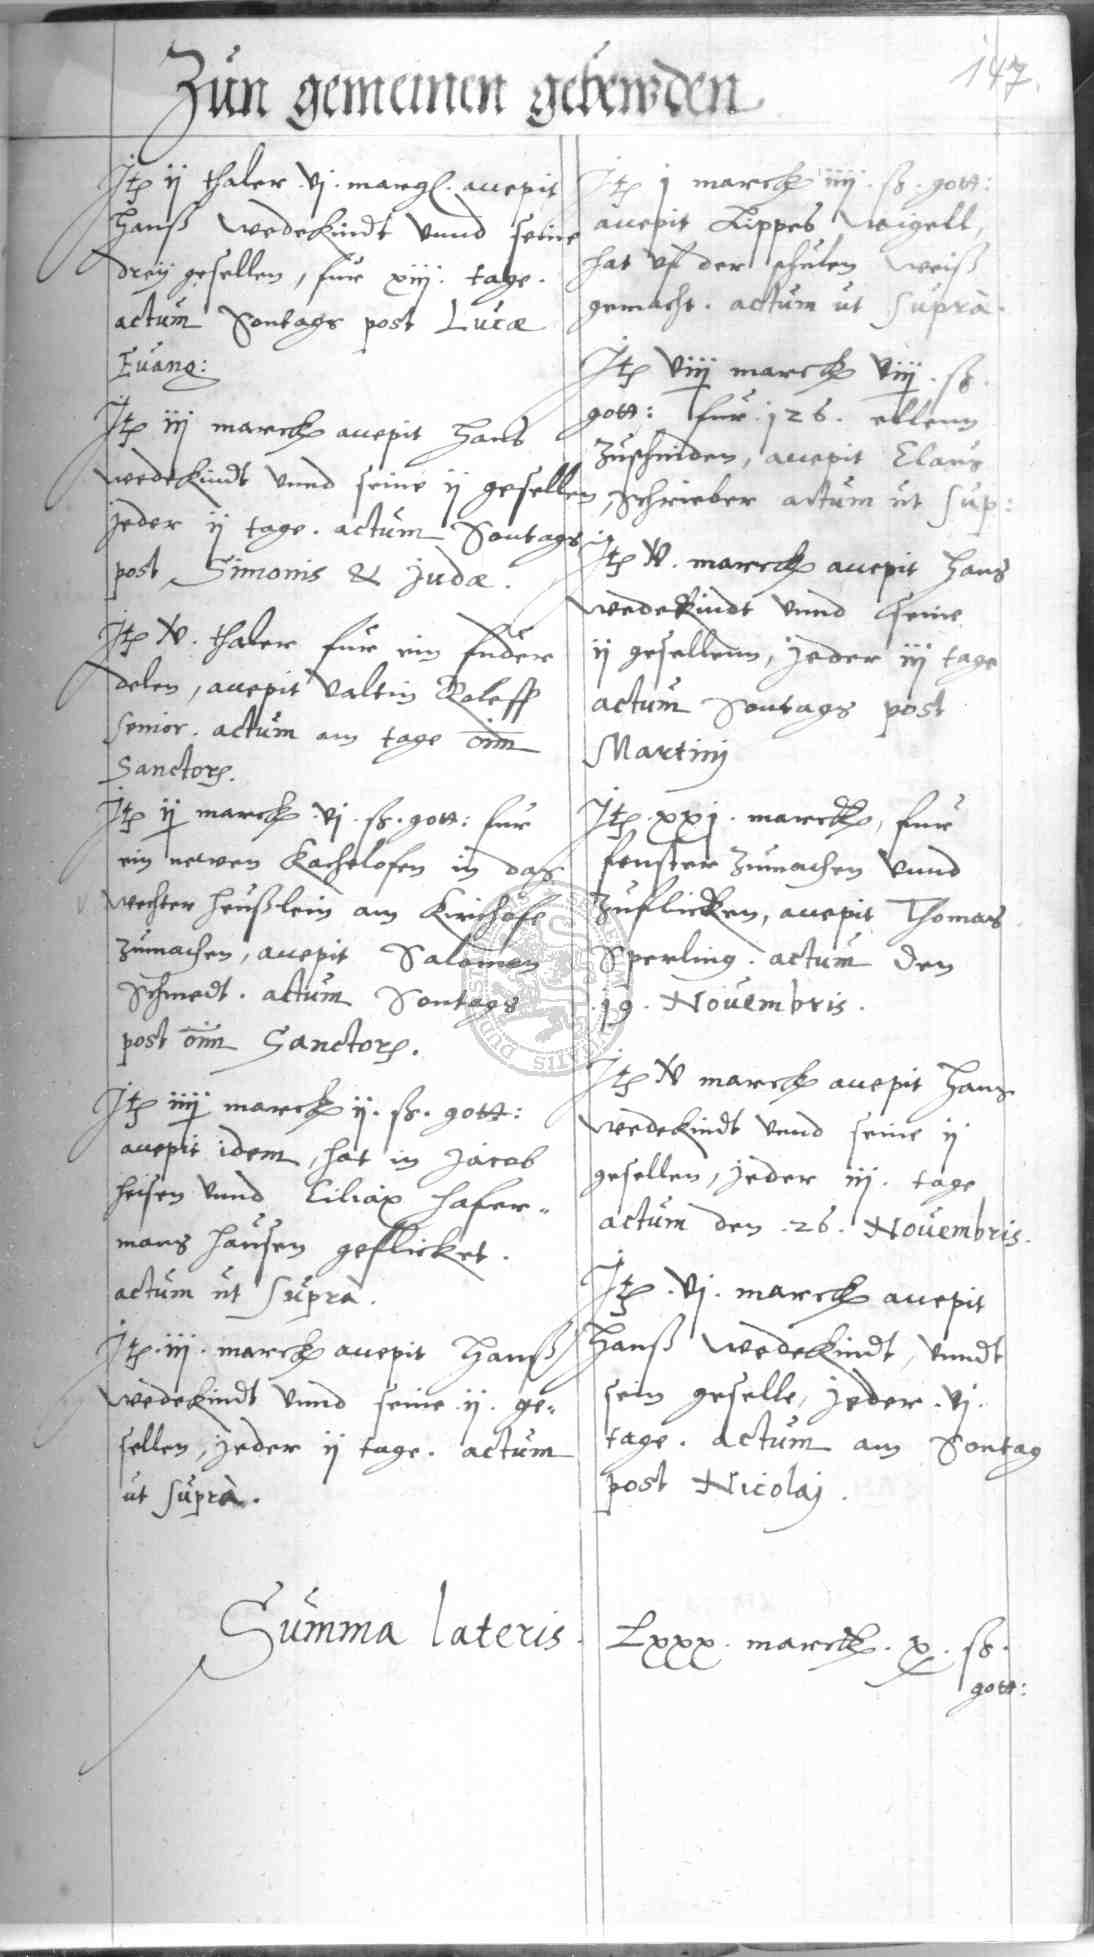 147.
Zun gemeinen gebewden
Jtem ij thaler .vj. margl. accepit
Hanß Wedekindt vnnd seine
dreij gesellen, fur xiij. tage.
actum Sontags post Lucæ
Euang:
Jtem iij marck accepit Hans
Wedekindt vnnd seine ij gesellen,
jeder ij tage. actum Sontags
post Simonis & Judæ.
Jtem x. thaler fur ein fuder
delen, accepit Valtin Roleff
Senior. actum am tage oim
Sanctor.
Jtem ij marck .vj. ß. gott: fur
ein newen Kachelofen in das
wechter heußlein am Kirchofe
zumachen, accepit Salomon
Schmedt. actum Sontags
post oim Sanctor.
Jtem iiij marck ij. ß. gott:
accepit idem, hat in Jacob
heisen vnnd Ciliax hafer=
mans hausen geflicket.
actum ut supra.
Jtem .iij. marck accepit Hanß
Wedekindt vnnd seine .ij. ge=
sellen, jeder ij tage. actum
ut supra.
Jtem j marck iiij. ß. gott:
accepit Lippes Weigell,
hat vf der schulen weiß
gemacht. actum ut supra.
Jtem viij marck viij. ß.
gott: fur .126. ellenn
zuschniden, accepit Claus
Schrieber actum ut sup:
Jtem v. marck accepit Hans
Wedekindt vnnd seine
ij gesellenn, jeder iij tage
actum Sontags post
Martinij
Jtem .xxj. marck, fur
fenster zumachen vnnd
zuflicken, accepit Thomas
Sperling. actum den
.19. Nouembris.
Jtem v marck accepit Hans
Wedekindt vnnd seine ij
gesellen, jeder iij. tage
actum den .26. Nouembris.
Jtem .vj. marck accepit
Hanß Wedekindt, vnndt
sein geselle, jeder .vj.
tage. actum am Sontag
post Nicolaj.
Summa lateris. Lxxx. marck. x. ß.
gott: